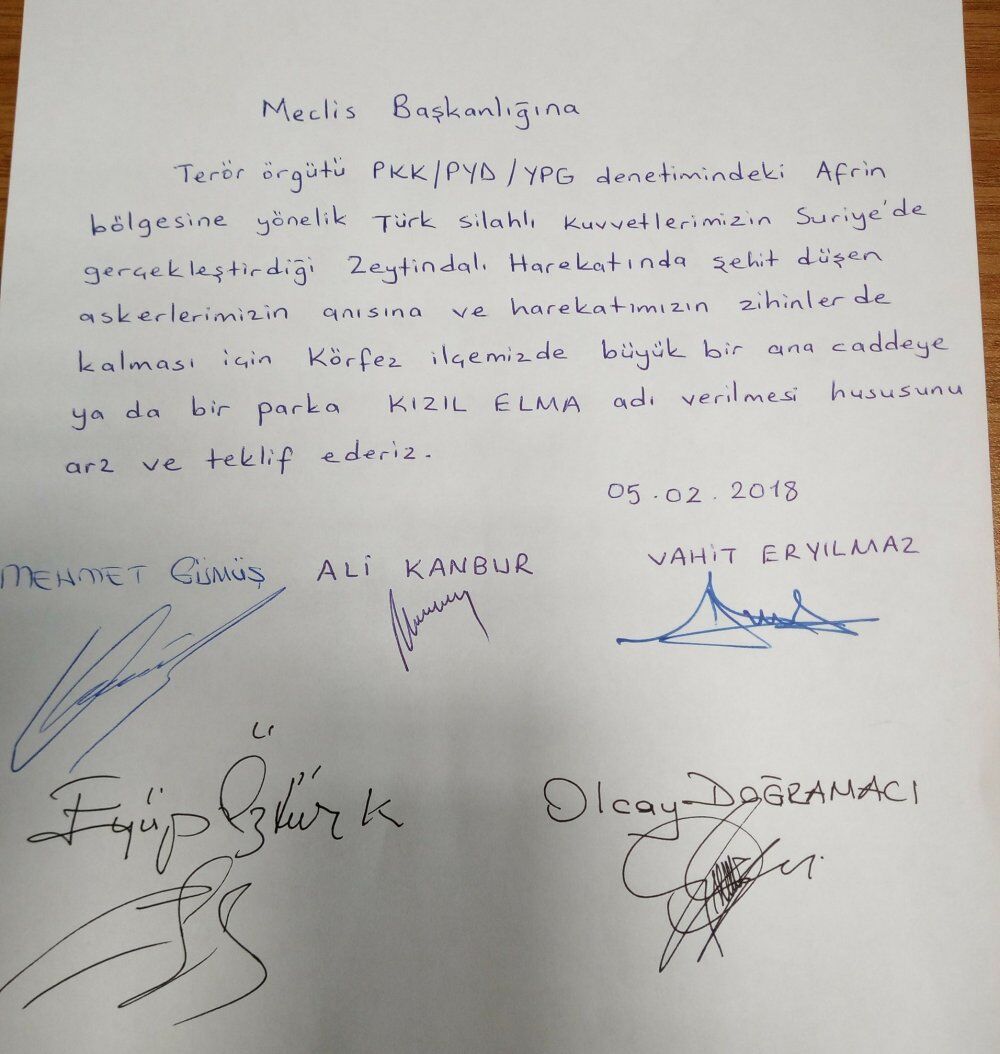 Meclis Başkanlığına
Terör örgütü PKK/PYD/YPG denetimindeki Afrin
bölgesine yönelik Türk Silahlı Kuvvetlerimizin Suriye'de
gerçekleştirdiği Zeytindalı Harekatında şehit düşen
askerlerimizin anısına ve harekatımızın zihinlerde
kalması için Körfez ilçemizde büyük bir ana caddeye
ya da bir parka KIZIL ELMA adı verilmesi hususunu
arz ve teklif ederiz.
05.02.2018
MEHMET GÜMÜŞ ALİ KANBUR VAHİT ERYILMAZ
Eyüp Öztürk Olcay DOĞRAMACI